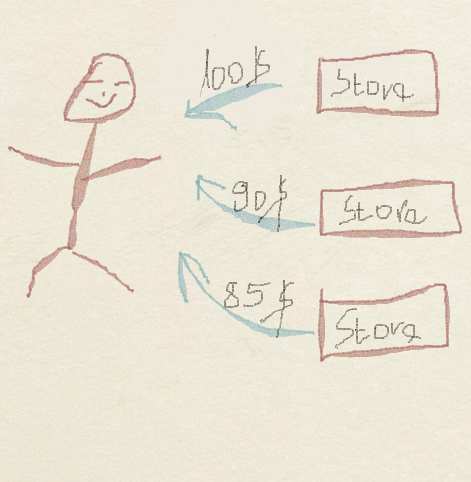 100$ Store
90$ Store
85$ Store